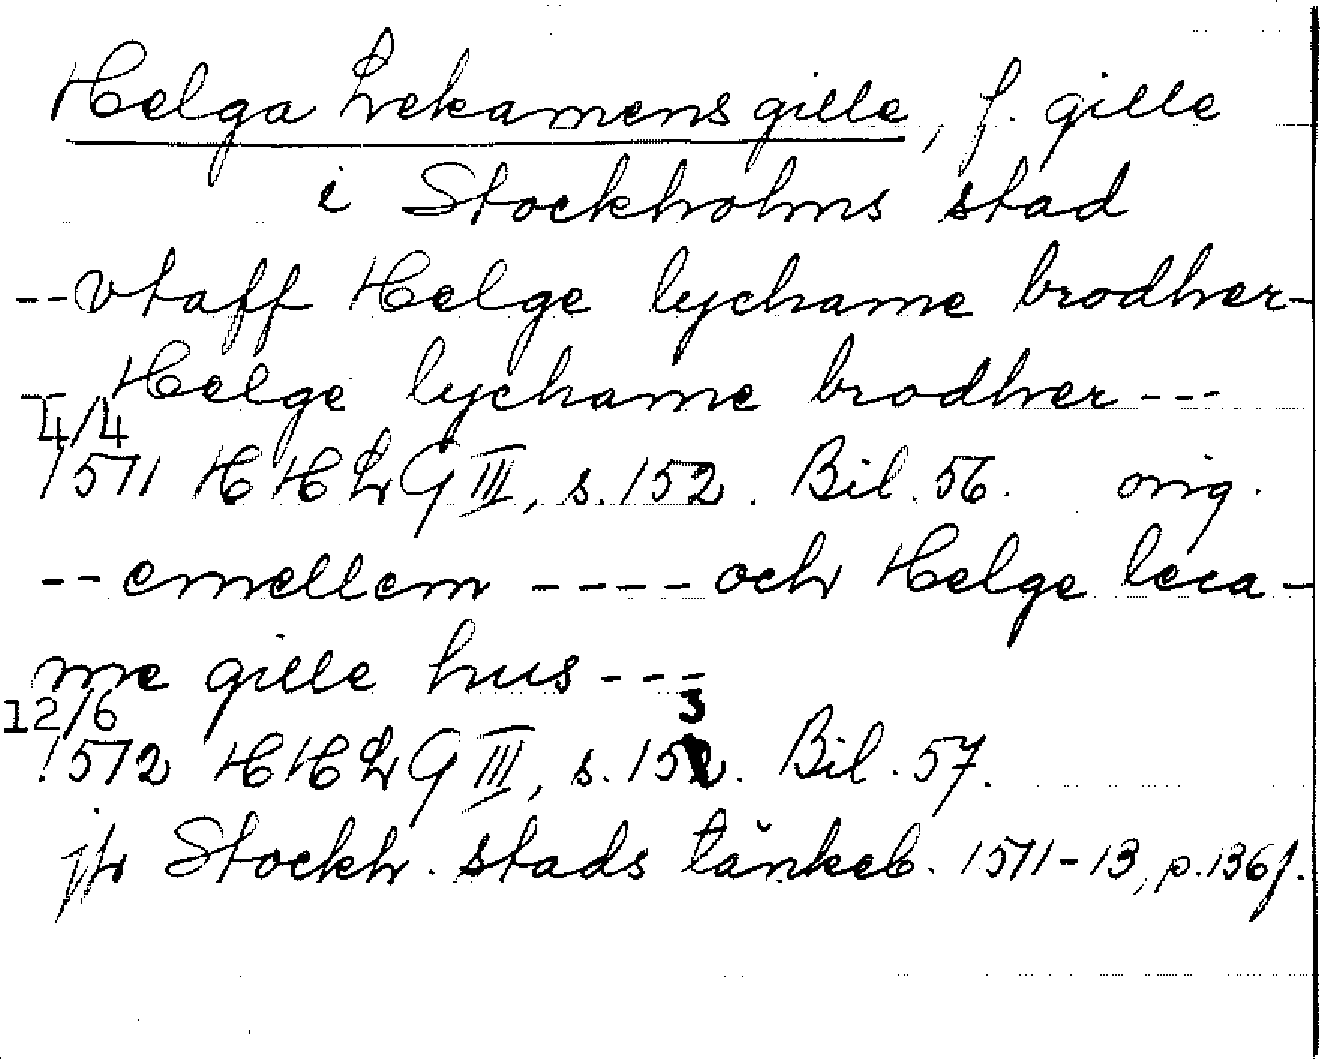 Helga Lekamensgille, f. gille
i Stockholms stad
--vtaff Helge lychame brodher-
-- Helge lychame brodher---
4/4
1571 HHLG III, s.152. Bil. 56. orig.
--emellem ----och Helge leca-
me gille hus---
12/6
1572 HHLG III, s.153. Bil. 57.
jfr Stockh. stads tänkeb. 1571-73, p.136f.